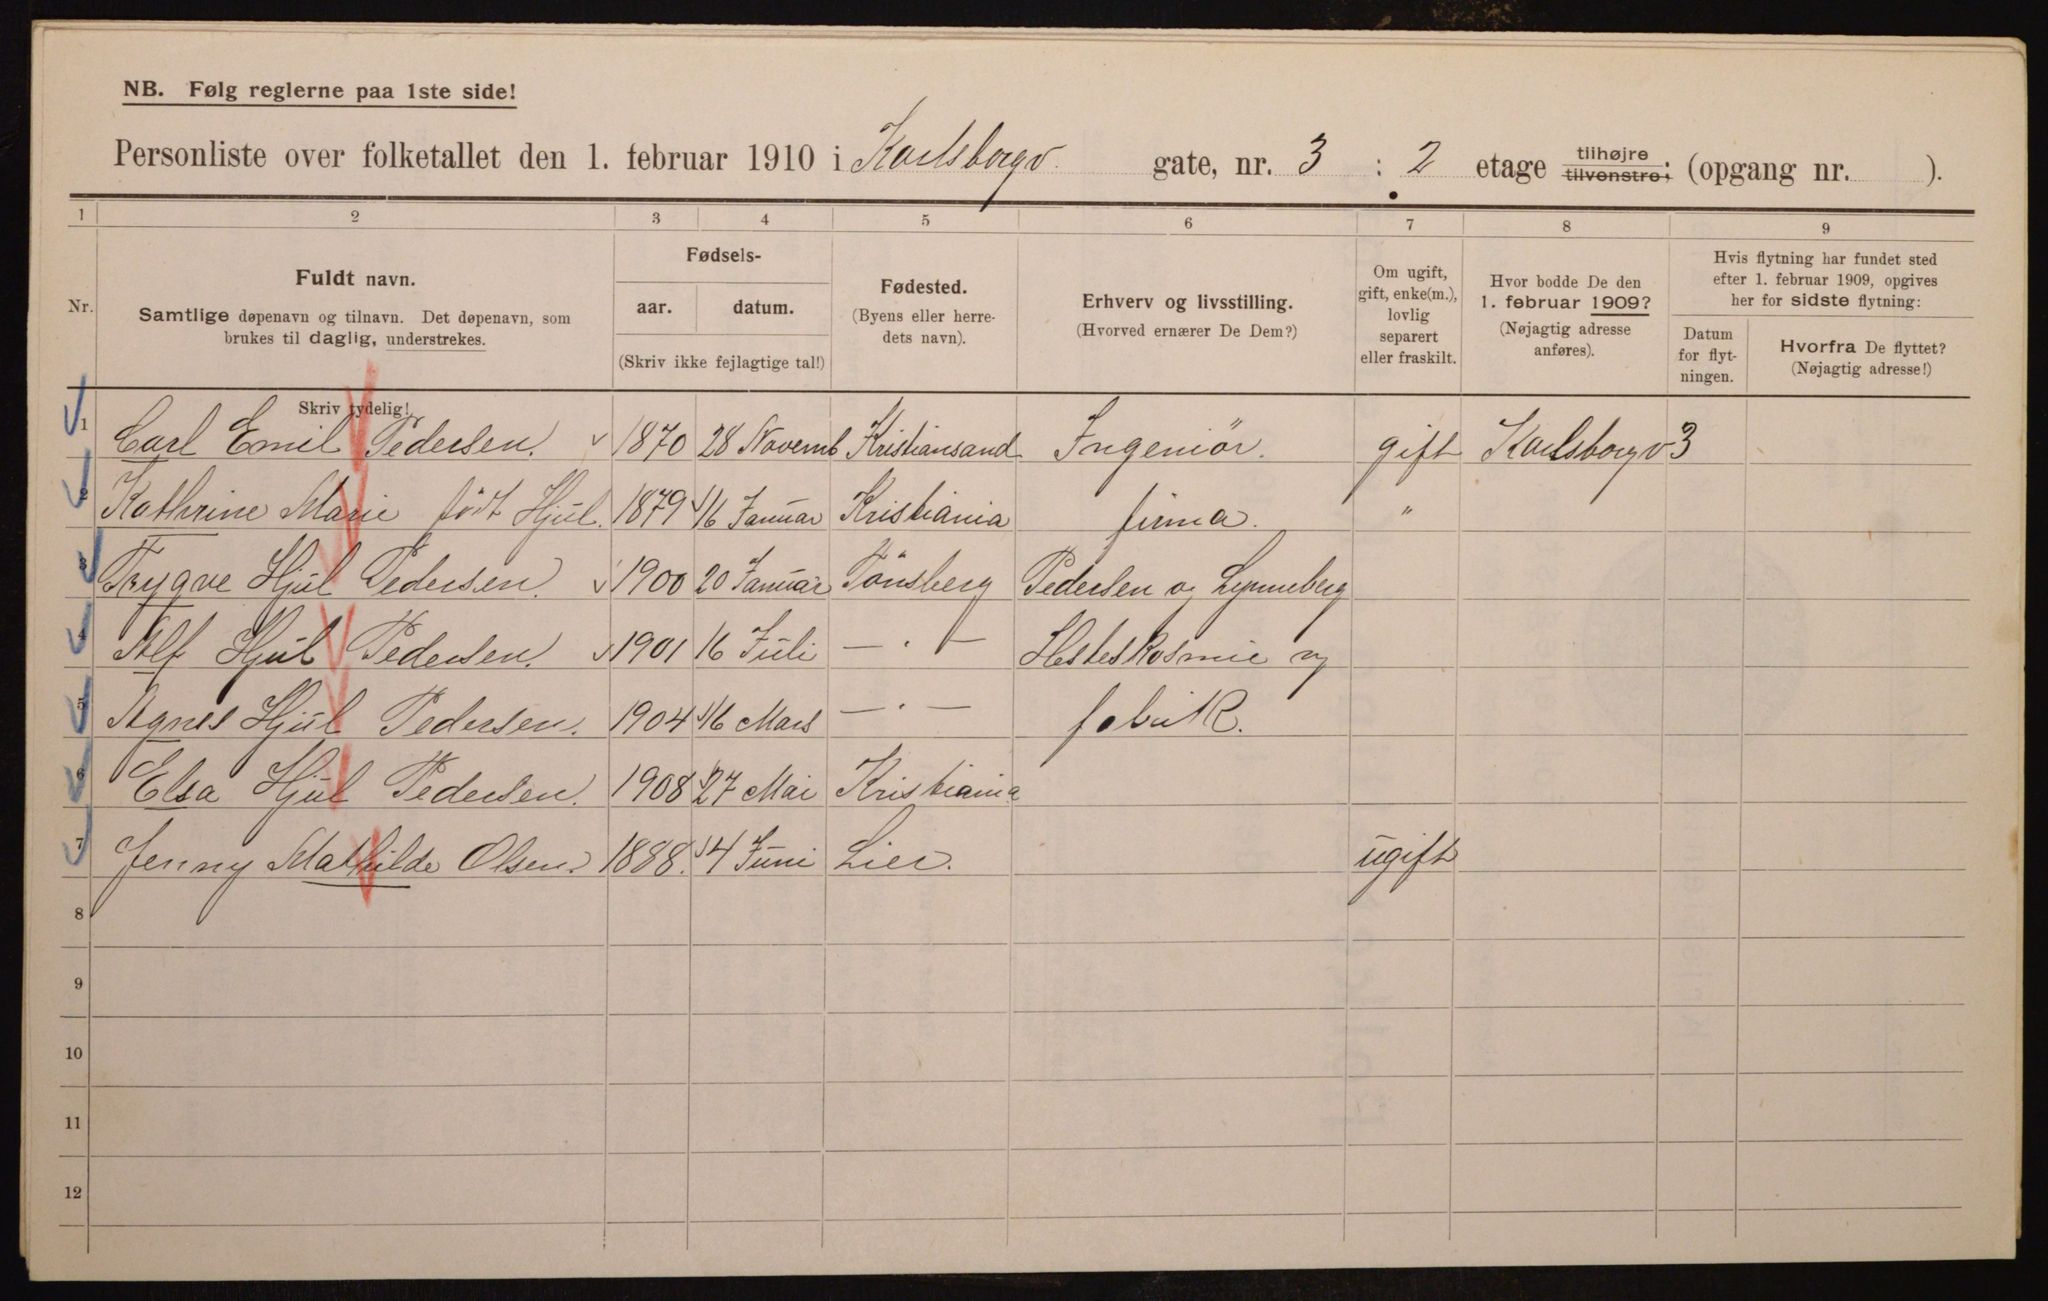 NB. Følg reglerne paa 1ste side!
Personliste over folketallet den 1. februar 1910 i Karlsborgv. gate, nr. 3 : 2 etage tilhøjre tilvenstre; (opgang nr. ).
1 2 3 4 5 6 7 8 9
Nr.
Fuldt navn.
Samtlige døpenavn og tilnavn. Det døpenavn, som
brukes til daglig, understrekes.
Skriv tydelig!
Fødsels-
aar. datum.
(Skriv ikke fejlagtige tal!)
Fødested.
(Byens eller herre-
dets navn).
Erhverv og livsstilling.
(Hvorved ernærer De Dem?)
Om ugift,
gift, enke(m.),
lovlig
separert
eller fraskilt.
Hvor bodde De den
1. februar 1909?
(Nøjagtig adresse
anføres).
Hvis flytning har fundet sted
efter 1. februar 1909, opgives
her for sidste flytning:
Datum
for flyt-
ningen.
Hvorfra De flyttet?
(Nøjagtig adresse!)
1 Carl Emil Pedersen. 1870 28 Novemb Kristiansand Ingeniør. gift Karlsborgv 3
2 Kathrine Marie født Hjul. 1879 16 Januar Kristiania firma. "
3 Trygve Hjul Pedersen. 1900 20 Januar Tönsberg Pedersen og Lynneberg
4 Alf Hjul Pedersen. 1901 16 Juli — . — Hesteskosmie og
5 Agnes Hjul Pedersen. 1904 16 Mars — . — fabrik.
6 Elsa Hjul Pedersen. 1908 27 Mai Kristiania
7 Jenny Mathilde Olsen. 1888. 4 Juni Lier. ugift
8
9
10
11
12